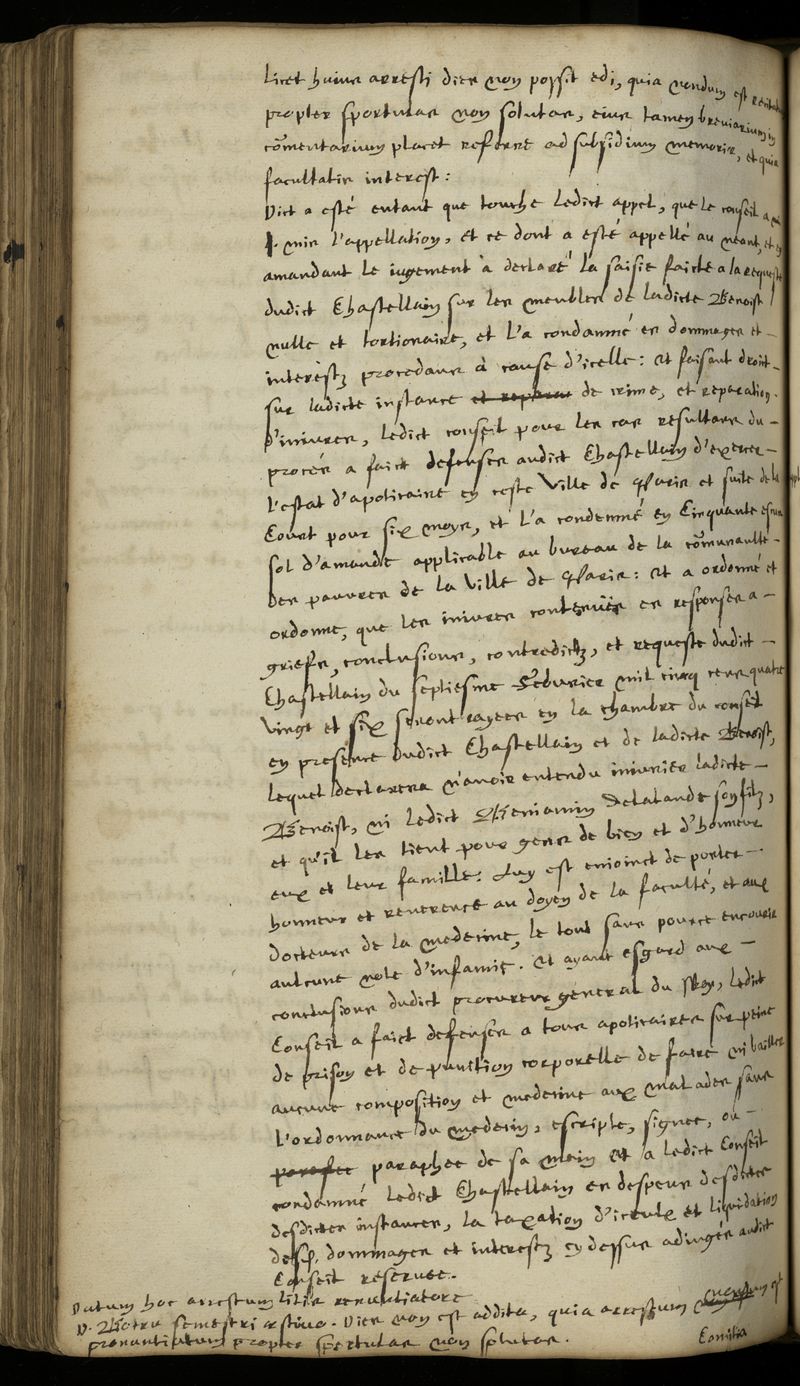 licet huius arresti dies non possit edi, quia nondum est recitatum
propter sportulas non solutas, eius tamen breviarium in
cõmentarium placet referre ad subsidium memoriæ, et quia
facultatis interest:
Dict a esté entant que touche ledict appel, que le conseil a
mis l'appellation, et ce dont a esté appellé au néant, et en
amandant le iugement à declaré la saisie faicte a la requeste
dudict Chastellain sur les meubles de ladicte Benoist
nulle et tortionaire, et l'a condamné es dommages et
interestz procedans à cause d'icelle: Et faisant droit
sur ladicte instance de crime, et reparation
d'iniures, ledict conseil pour les cas resultans du
procés a faict defenses audict Chastellain d'exercer
l'estat d'apoticaire en ceste ville de Paris et suite de la
Court pour six moys, et l'a condemné en Cinquante escus
sol d'amande applicable au bureau de la cõmunaulté
des pauvres de la ville de Paris: Et a ordonné et
ordonne, que les iniures contenües es responses a
griefs, conclusions, contredictz, et requeste dudict
Chastellain du septiesme Febvrier mil cinq cens quatre
vingt et six seront rayees en la chambre du conseil
en presence dudict Chastellain et de ladicte Benoist,
lequel declarera n'avoir entendu iniurier ladicte
Benoist, ni ledict Beniamin Delalande son filz,
et qu'il les tient pour gens de bien et d'honneur
eux et leur famille: Luy est enioinct de porter
honneur et reverence au doyen de la faculté, et aux
docteurs de la medecine, le tout sans pource encourir
aulcune note d'infamie. Et ayant esgard aux
conclusions dudict procureur general du Roy, ledict
Conseil a faict defenses a tous apoticaires sur peine
de prison et de punition corporelle de faire ni bailler
aucune composition et medecine aux malades sans
l'ordonnance du medecin, escripte, signee, ou
paraphee de sa main Et a ledict Conseil
condamné ledict Chastellain es despens desdictes
desdictes instances, la taxation d'iceulx et liquidation
desp. dommages et interestz cy dessus adiugés audict
Conseil réservee.
Datum hoc arrestum litis renuntiatore
D. semestri æstivo. Dies non est addita, quia arrestum nondum est
pronuntiatum propter sportulas non solutas.
Comitia